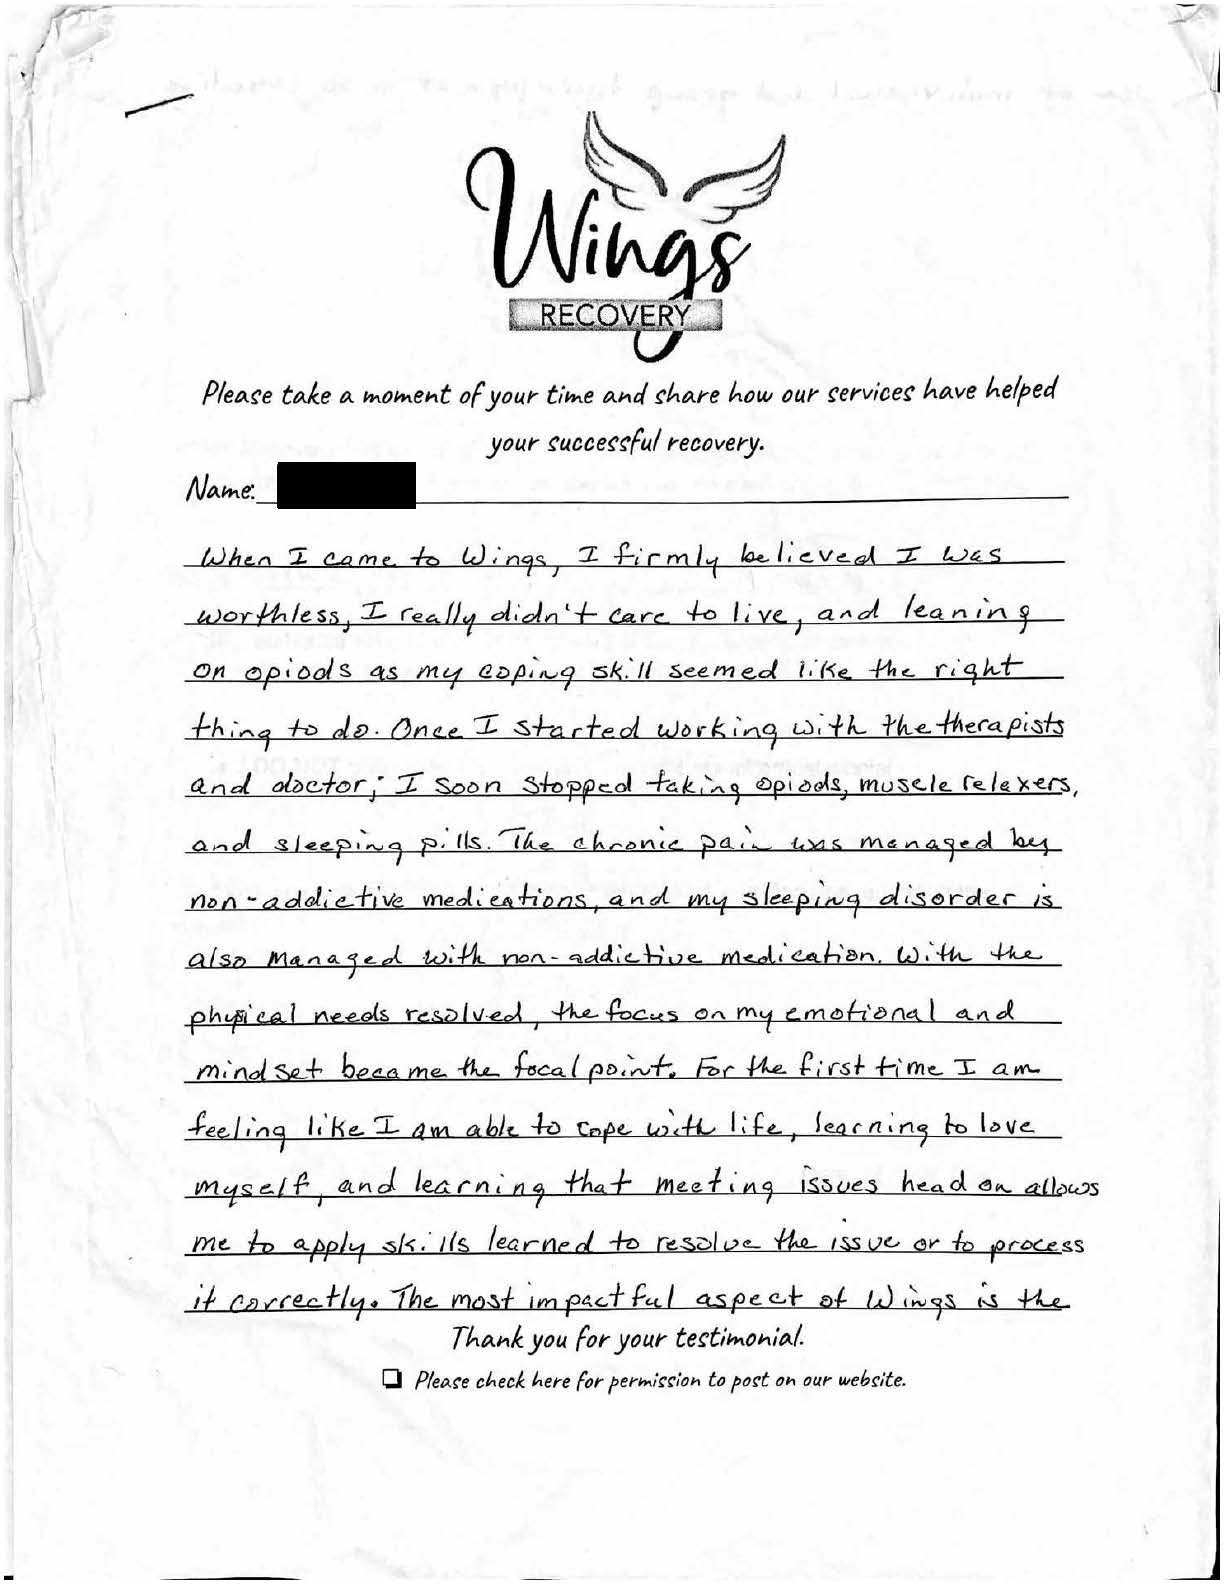 Wings
RECOVERY
Please take a moment of your time and share how our services have helped
your successful recovery.
Name:
When I came to Wings, I firmly believed I was
worthless, I really didn't care to live, and leaning
on opiods as my coping skill seemed like the right
thing to do. Once I started working with the therapists
and doctor; I soon stopped taking opiods, muscle relaxers,
and sleeping pills. The chronic pain was managed by
non-addictive medications, and my sleeping disorder is
also managed with non-addictive medication. With the
physical needs resolved, the focus on my emotional and
mindset became the focal point. For the first time I am
feeling like I am able to cope with life, learning to love
myself, and learning that meeting issues head on allows
me to apply skills learned to resolve the issue or to process
it correctly. The most impactful aspect of Wings is the
Thank you for your testimonial.
Please check here for permission to post on our website.